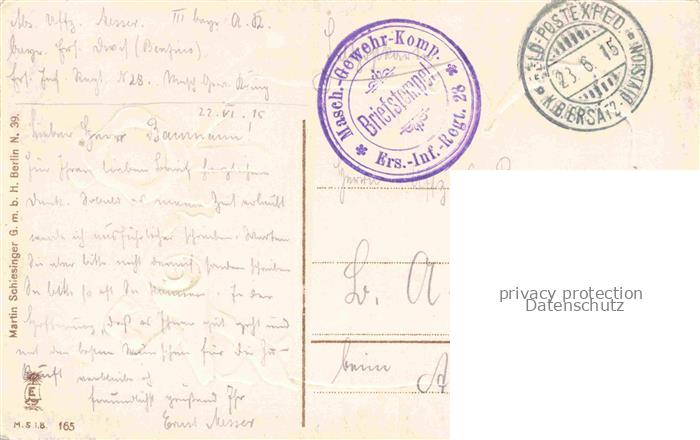 Abs. Uffz. Messer. III bayr. A. K.
bayr. Ers. Div.
Ers. Inf. Regt. N 28. Masch. Gew. Komp
22. VI. 15
Lieber Herr Baumann!
Für Ihren lieben Brief herzlichen
Dank. Sobald es meine Zeit erlaubt
werde ich ausführlicher schreiben. Warten
Sie aber bitte nicht darauf sondern schreiben
Sie bitte so oft Sie können. In der
Hoffnung, daß es Ihnen gut geht und
mit den besten Wünschen für die Zu-
kunft verbleibe ich
freundlichst grüßend Ihr
Ernst Messer
Martin Schlesinger G. m. b. H. Berlin N. 39.
M.S.i.B. 165
Masch.-Gewehr-Komp.
Briefstempel
Ers.-Inf.-Regt. 28
FELD-POSTEXPED.
23. 6. 15
K.B. ERSATZ-DIVISION
Herrn
L. A
beim A
privacy protection
Datenschutz